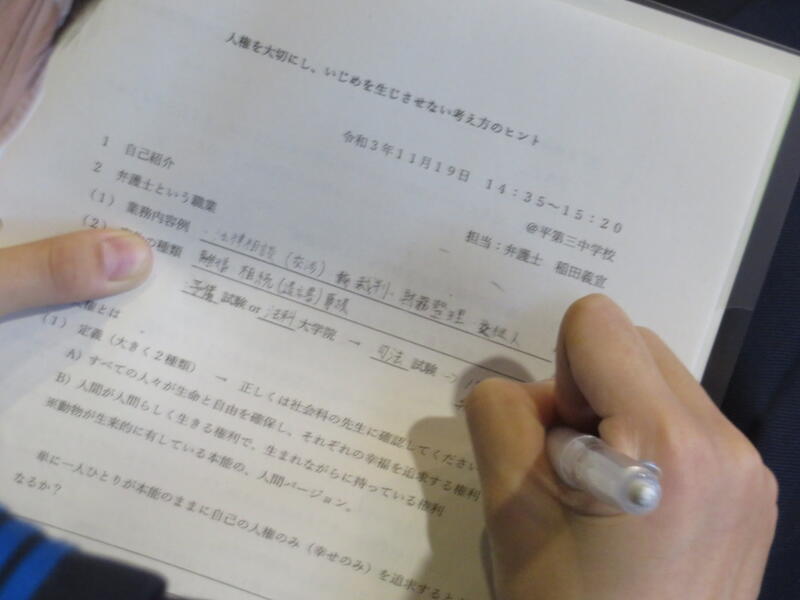 人権を大切にし、いじめを生じさせない考え方のヒント
令和3年11月19日 14:35～15:20
@平第三中学校
担当：弁護士 稲田義宣
1 自己紹介
2 弁護士という職業
(1) 業務内容例 ・法律相談 (交渉) 裁判・財務整理
(2) の種類 離婚 相続(遺言書) 事項
予備 試験 or 法科 大学院 → 司法 試験 →
権とは
(1) 定義（大きく2種類） → 正しくは社会科の先生に確認してください
A) すべての人々が生命と自由を確保し、それぞれの幸福を追求する権利
B) 人間が人間らしく生きる権利で、生まれながらに持っている権利
※動物が生来的に有している本能の、人間バージョン。
単に一人ひとりが本能のままに自己の人権のみ（幸せのみ）を追求すると
なるか？